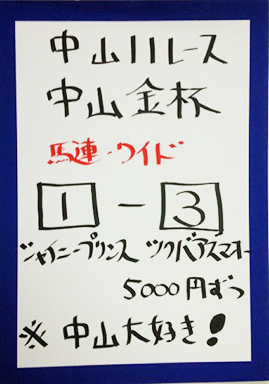 中山11レース
中山金杯
馬連・ワイド
1-3
シャイニープリンス ツクバアズマオー
5000円ずつ
※中山大好き!